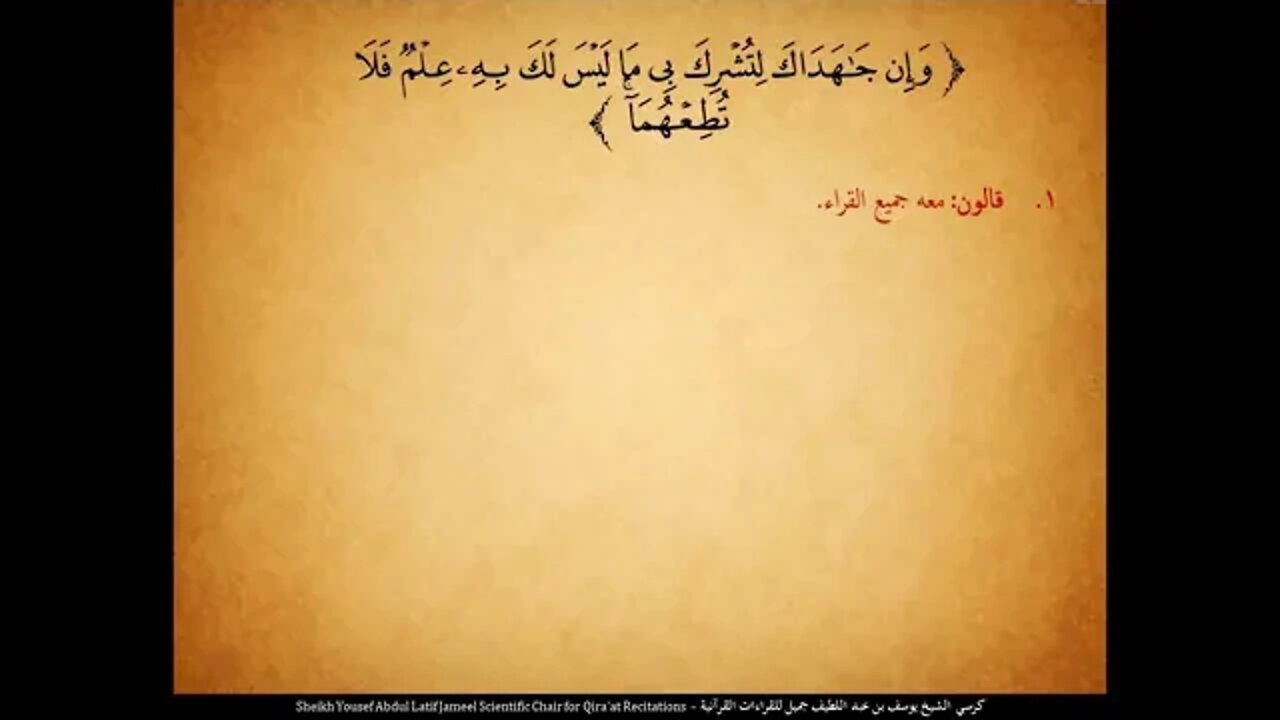 ﴿ وَإِن جَـٰهَدَاكَ لِتُشْرِكَ بِى مَا لَيْسَ لَكَ بِهِۦ عِلْمٌ فَلَا
تُطِعْهُمَآ ۚ ﴾
١. قالون: معه جميع القراء.
Sheikh Yousef Abdul Latif Jameel Scientific Chair for Qira'at Recitations - كرسي الشيخ يوسف بن عبد اللطيف جميل للقراءات القرآنية